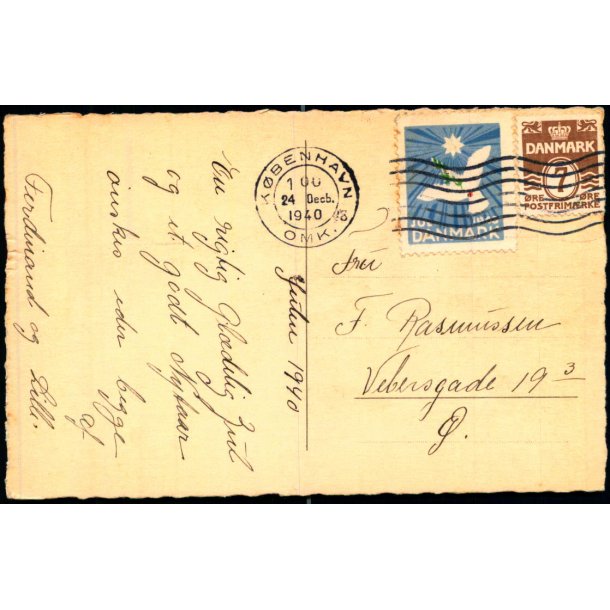 En rigtig Glædelig Jul
og et godt Nytaar
ønskes eder begge
af
Ferdinand og Lilli.
Julen 1940
KØBENHAVN
1 00
24 Decb.
1940
OMK.
JUL 1940
DANMARK
DANMARK
7
ØRE ØRE
POSTFRIMÆRKE
Fru
F. Rasmussen
Vebersgade 19 3
Ø.